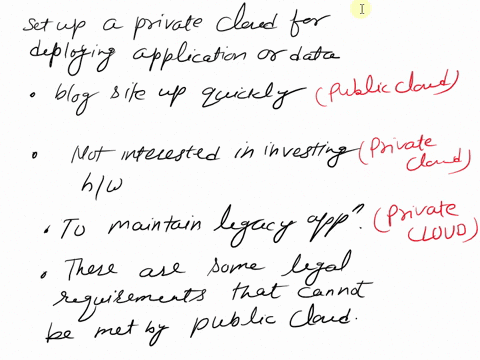 set up a private cloud for
deploying application or data
• blog site up quickly (Public Cloud)
• Not interested in investing (Private Cloud)
h/w
• To maintain legacy appn. (Private CLOUD)
• There are some legal
requirements that cannot
be met by public cloud.